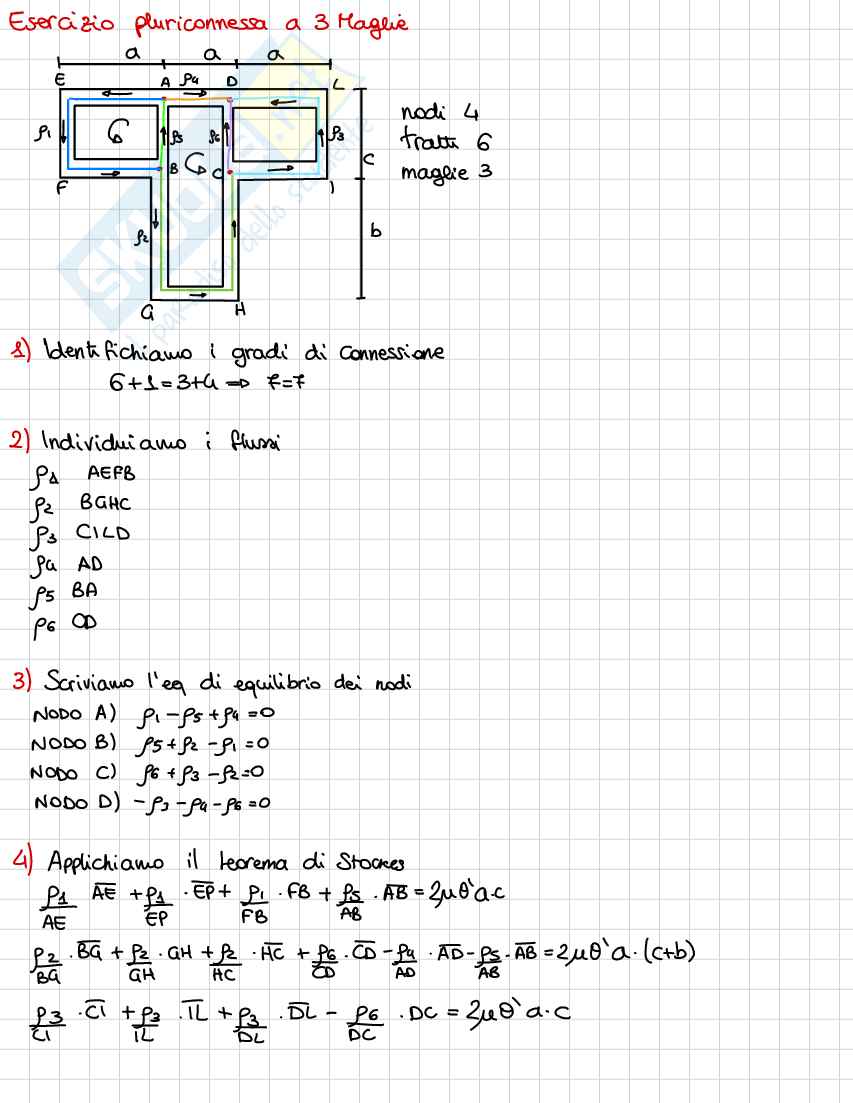 Esercizio pluriconnessa a 3 Maglie
a a a
E A ρ4 D L
ρ1 ρ5 ρ6 ρ3
B C c
F I
ρ2 b
G H
nodi 4
tratti 6
maglie 3
1) Identifichiamo i gradi di connessione
6+1=3+4 => 7=7
2) Individuiamo i flussi
ρ1 AEFB
ρ2 BGHC
ρ3 CILD
ρ4 AD
ρ5 BA
ρ6 CD
3) Scriviamo l'eq di equilibrio dei nodi
NODO A) ρ1-ρ5+ρ4=0
NODO B) ρ5+ρ2-ρ1=0
NODO C) ρ6+ρ3-ρ2=0
NODO D) -ρ3-ρ4-ρ6=0
4) Applichiamo il teorema di Stockes
ρ1/AE AE + ρ1/EP · EP + ρ1/FB · FB + ρ5/AB · AB = 2μθ' a·c
ρ2/BG · BG + ρ2/GH · GH + ρ2/HC · HC + ρ6/CD · CD - ρ4/AD · AD - ρ5/AB · AB = 2μθ' a·(c+b)
ρ3/CI · CI + ρ3/IL · IL + ρ3/DL · DL - ρ6/DC · DC = 2μθ' a·c